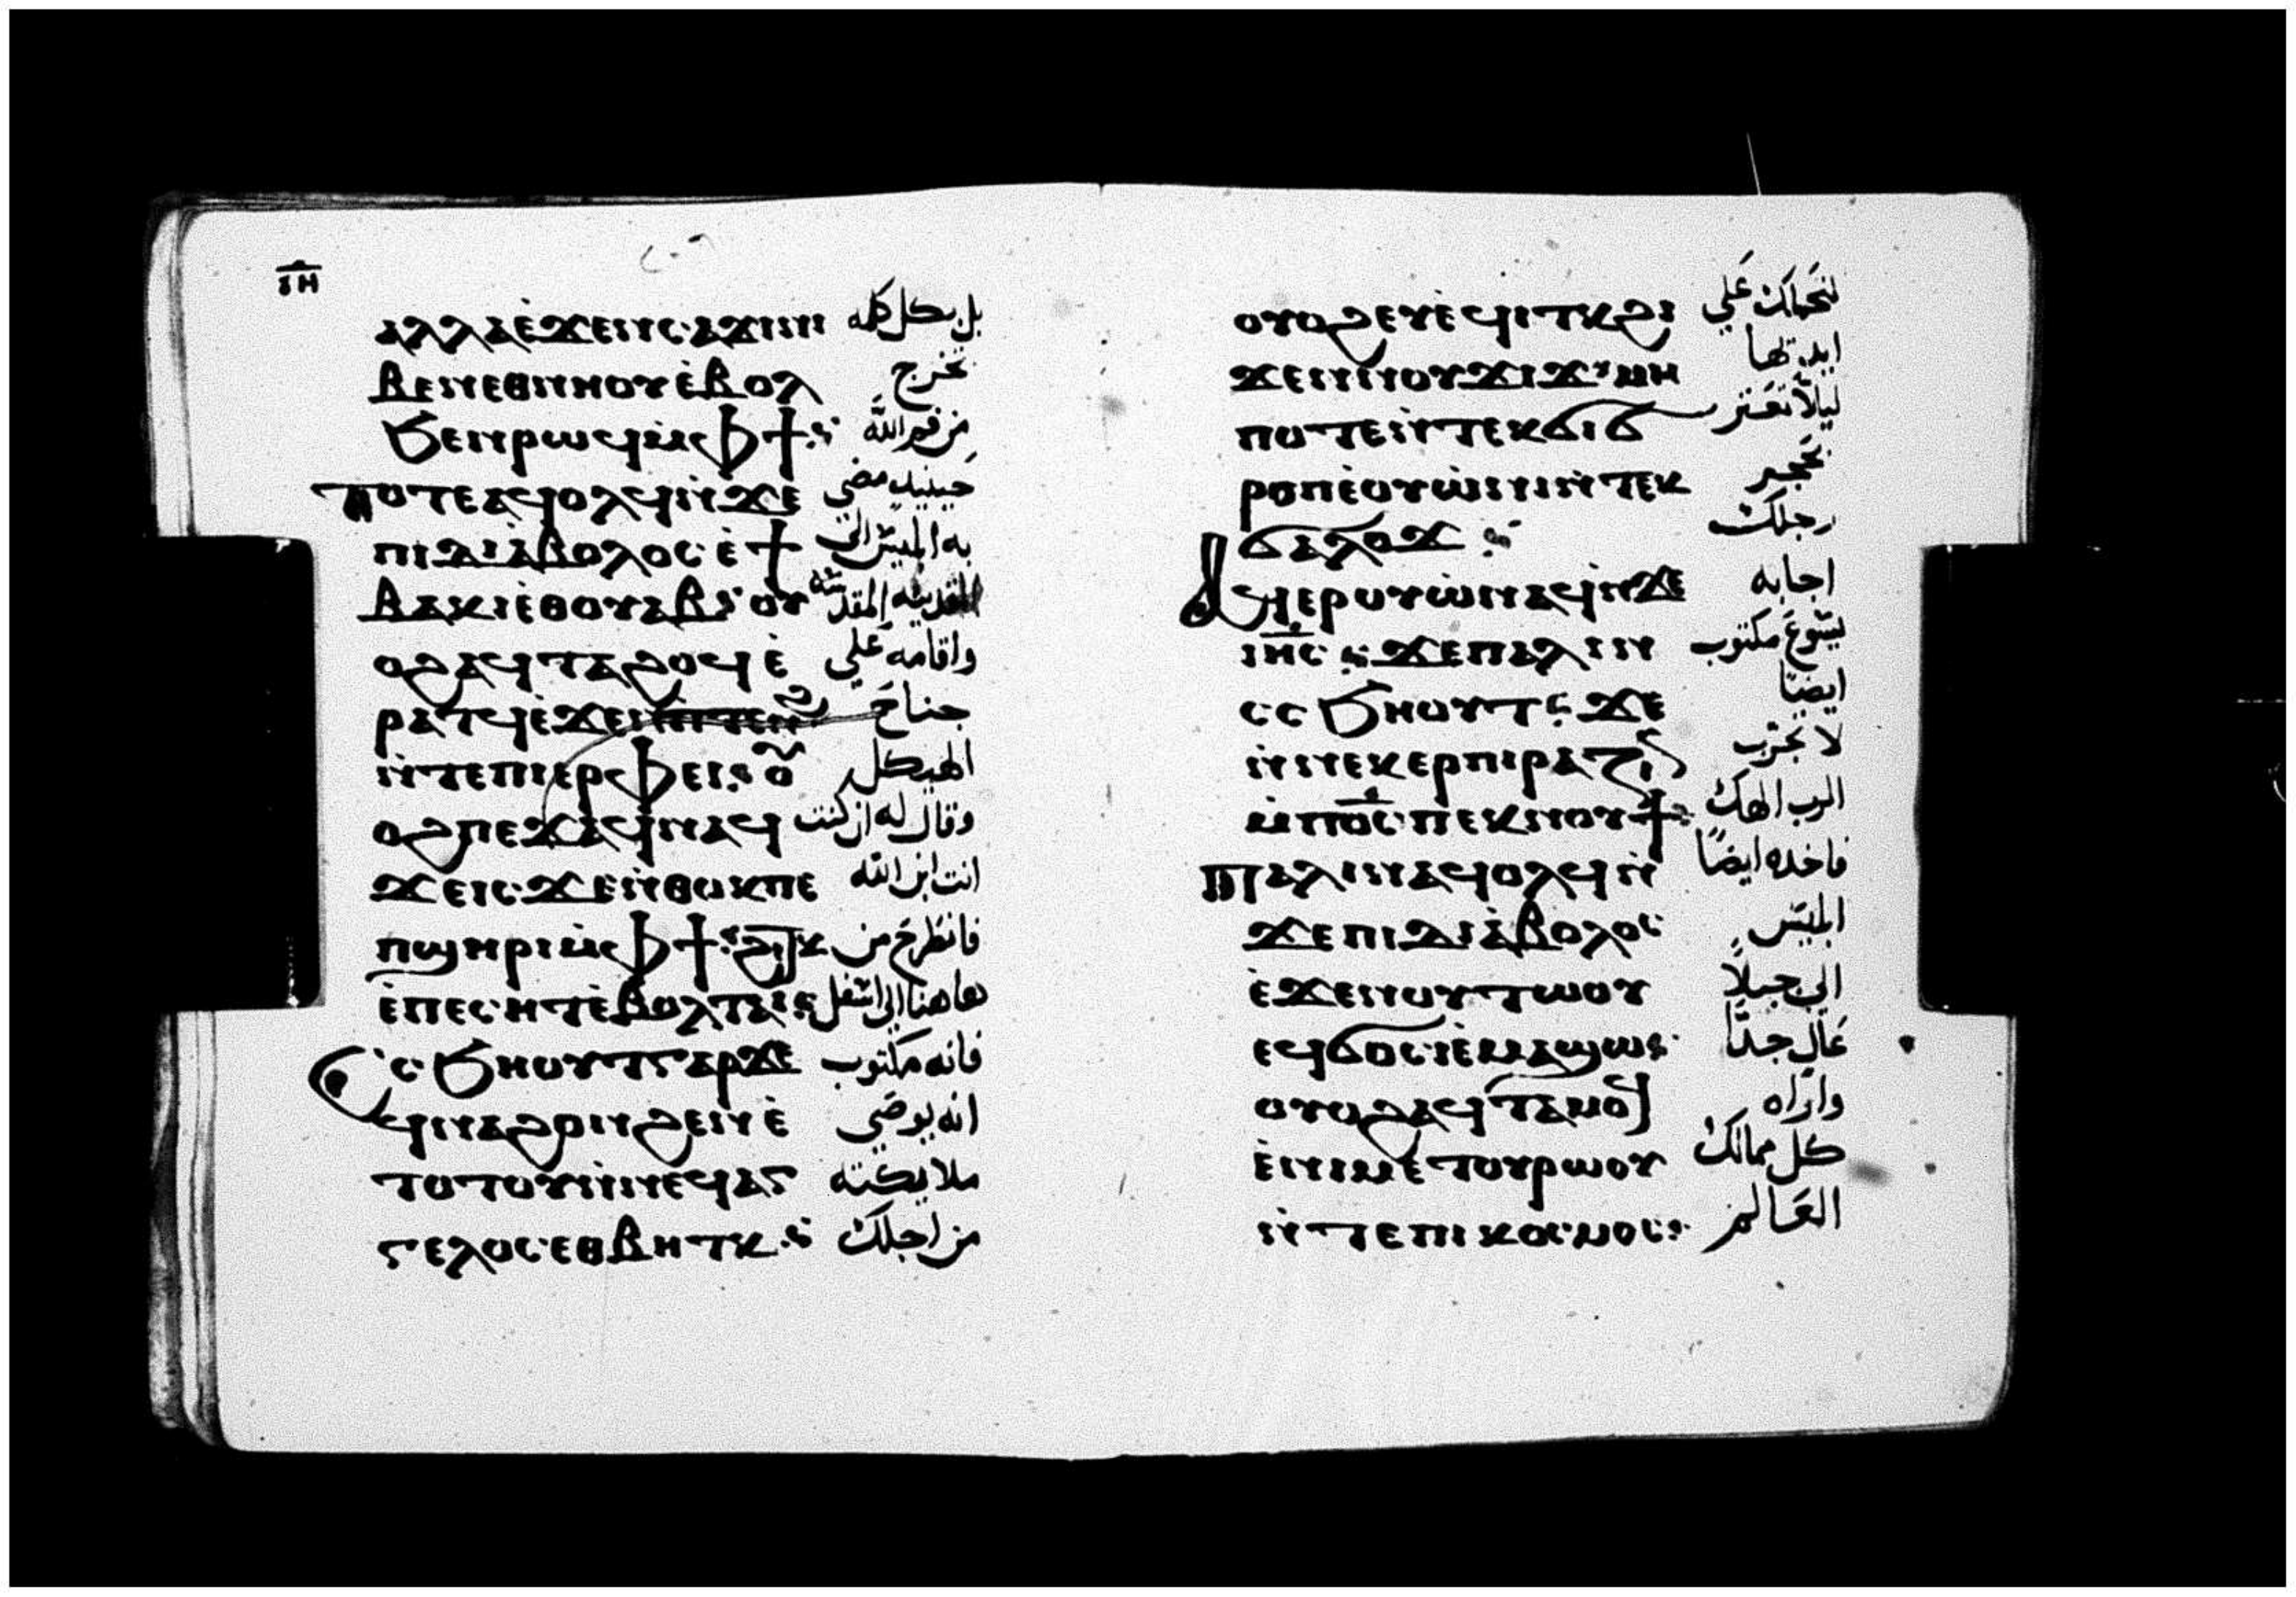 ⲓⲏ
ⲁⲗⲗⲁⲉ̀ϫⲉⲛⲥⲁϫⲓⲛⲓ بل بكل كله
ⲃⲉⲛⲉⲑⲛⲏⲟⲩⲉ̀ⲃⲟⲗ تخرج
ϧⲉⲛⲣⲱϥⲙ̀ⲫϯ من فم الله
ⲧⲟⲧⲉⲁϥⲟⲗϥⲛ̀ϫⲉ حينيد مضى
ⲡⲓⲇⲓⲁ̀ⲃⲟⲗⲟⲥⲉ̀ϯ به ابليس الى
ⲃⲁⲕⲓⲉ̀ⲑⲟⲩⲁⲃ ⲟⲩ المقدسه
ⲟϩⲁϥⲧⲁϩⲟϥⲉ̀ واقامه على
ⲣⲁⲧϥⲉ̀ϫⲉⲛⲡⲧⲉⲛϩ جناح
ⲛ̀ⲧⲉⲡⲓⲉⲣⲫⲉⲓ ⲟⲩ الهيكل
ⲟϩⲡⲉϫⲁϥⲛⲁϥ وقال له ان كنت
ϫⲉⲓⲥϫⲉⲛ̀ⲑⲟⲕⲡⲉ انت ابن الله
ⲡϣⲏⲣⲓⲙ̀ⲫϯ ϩⲓⲧⲕ فانطرح من
ⲉ̀ⲡⲉⲥⲏⲧⲉ̀ⲃⲟⲗⲧⲁⲓ هاهنا الى اسفل
ⲥϧⲏⲟⲩⲧⲅⲁⲣϫⲉ فانه مكتوب
ϥⲛⲁϩⲟⲛϩⲉⲛⲉ̀ انه يوصي
ⲧⲟⲧⲟⲩⲛ̀ⲛⲉϥⲁⲅ ملايكته
ⲅⲉⲗⲟⲥⲉⲑⲃⲏⲧⲕ من اجلك
ⲟⲩⲟϩⲉⲩⲉ̀ϥⲓⲧⲕϩⲓ لتحملك على
ϫⲉⲛⲛⲟⲩϫⲓϫ ⲙⲏ ايديها
ⲡⲟⲧⲉⲛ̀ⲧⲉⲕϭⲓϭ ليلا تعثر
ⲣⲟⲡⲉ̀ⲟⲩⲱ̀ⲛⲓⲛ̀ⲧⲉⲕ بحجر
ϭⲁⲗⲟϫ رجلك
ⲁϥⲉⲣⲟⲩⲱ̀ⲛⲁϥⲛ̀ϫⲉ اجابه
ⲓⲏⲥ ϫⲉⲡⲁⲗⲓⲛ يسوع مكتوب
ⲥⲥϧⲏⲟⲩⲧ ϫⲉ ايضًا
ⲛ̀ⲛⲉⲕⲉⲣⲡⲓⲣⲁⲍⲓⲛ لا تجرب
ⲙ̀ⲡⲟ̅ⲥ̅ⲡⲉⲕⲛⲟⲩϯ الرب الهك
ⲡⲁⲗⲓⲛⲁϥⲟⲗϥⲛ̀ فاخده ايضًا
ϫⲉⲡⲓⲇⲓⲁ̀ⲃⲟⲗⲟⲥ ابليس
ⲉ̀ϫⲉⲛⲟⲩⲧⲱⲟⲩ الى جبلاً
ⲉϥϭⲟⲥⲓⲉ̀ⲙⲁϣⲱ عال جدًا
ⲟⲩⲟϩⲁϥⲧⲁⲙⲟϥ واراه
ⲉ̀ⲛⲓⲙⲉⲧⲟⲩⲣⲱⲟⲩ كل ممالك
ⲛ̀ⲧⲉⲡⲓⲕⲟⲥⲙⲟⲥ العالم